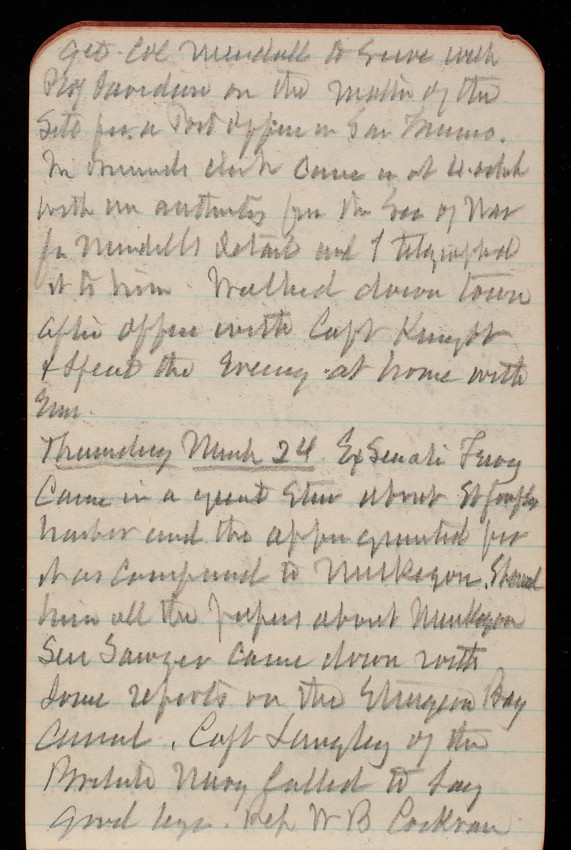 get Col Mendell to serve with
Prof Davidson on the matter of the
Site for a Post Office in San
clerk came in at 4 o'clock
with an authority from the Sec of War
for Mendell's detail and I telegraphed
it to him. Walked down town
after office with Capt Knight
& spent the evening at home with
Thursday March 24. Ex Senator Ferry
came in a great stew about St Joseph
harbor and the appn granted for
it as compared to Muskegon. Showed
him all the papers about Muskegon
Sen Sawyer came down with
some reports on the Sturgeon Bay
Canal. Capt Langley of the
Navy called to say
good bye. Rep W B Cockran